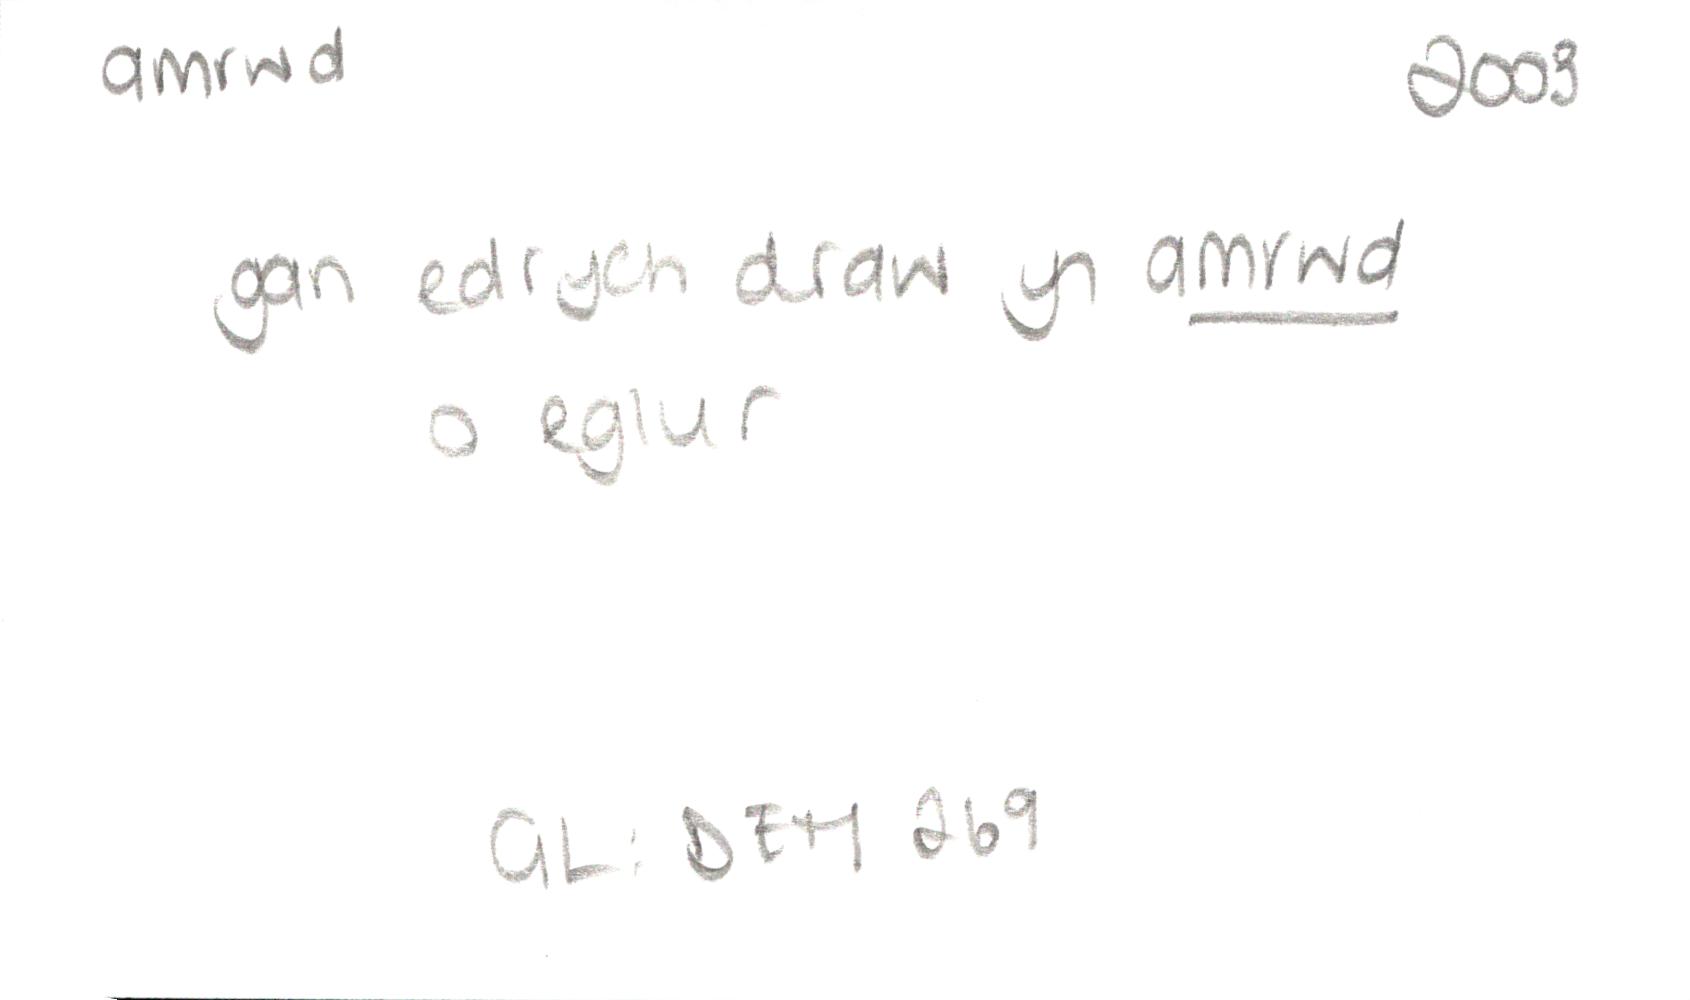 amrwd 2003
gan edrych draw yn amrwd
o eglur
GL: DEM 269